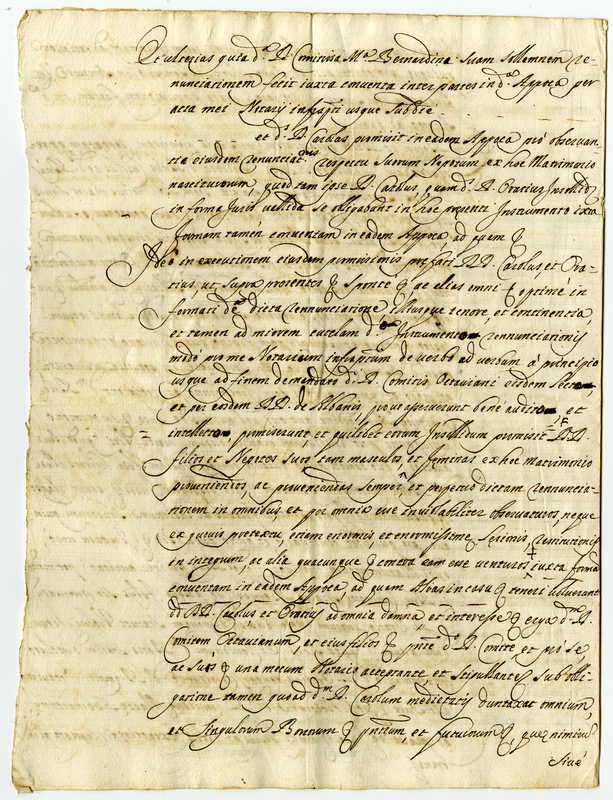 Et ulterias quia d.ª D. Comitissa M.ª Bernardina suam sollemnem re-
nunciationem fecit iuxta conventa inter partes in d.ª Apoca per
acta mei Notarij infrapti usque sub die
et d.s D. Carolus promisit in eadem Apoca pro observan-
tia eiusdem renunciat.nis respectu suorum Nepotum ex hoc Matrimonio
nasciturorum, quod tam ipse D. Carolus, quam d.s D. Oratius Insolid.
in forma Juris valida se obligabunt in hoc presenti Instrumento iuxta
formam tamen conventam in eadem Apoca ad quam &
Ideo in executionem eiusdem promissionis prefati DD. Carolus et Ora-
tius, ut supra presentes & sponte & ac alias omni & optime in
formati de dicta renunciatione illiusque tenore, et continentia,
et tamen ad maiorem cautelam d. Instrumento renunciationis
modo per me Notarium infraptum de verbo ad verbum a principio
usque ad finem de mandato d. D. Comitis Octaviani eisdem
et per eosdem DD. de Albanis, prout asseruerunt bene audito et
intellecto, promiserunt et quilibet eorum Insolidum promisit DD.
filios et Nepotes suos tam masculos, et feminas ex hoc Matrimonio
provenientes, ac proventuras semper, et perpetuo dictam renuncia-
tionem in omnibus, et per omnia inviolabiliter observaturos, neque
ex quovis pretextu, etiam enormis et enormissime Lesionis, restitutionis
in integrum, ac alia quacunque & contra eam venturos iuxta formam
conventam in eadem Apoca, ad quam alias in casu & teneri voluerunt
dd. DD. Carolus et Oratius ad omnia damna et interesse & erga d.m D.
Comitem Octavianum, et eius filios & pnte d.o D. Comite, et pro se
ac suis & una mecum Notario acceptante, et stipulante, sub obli-
gatione tamen quoad d.m D. Carolum medietatis duntaxat omnium,
et singulorum Bonorum & pntium, et futurorum &, que nimirum
sive